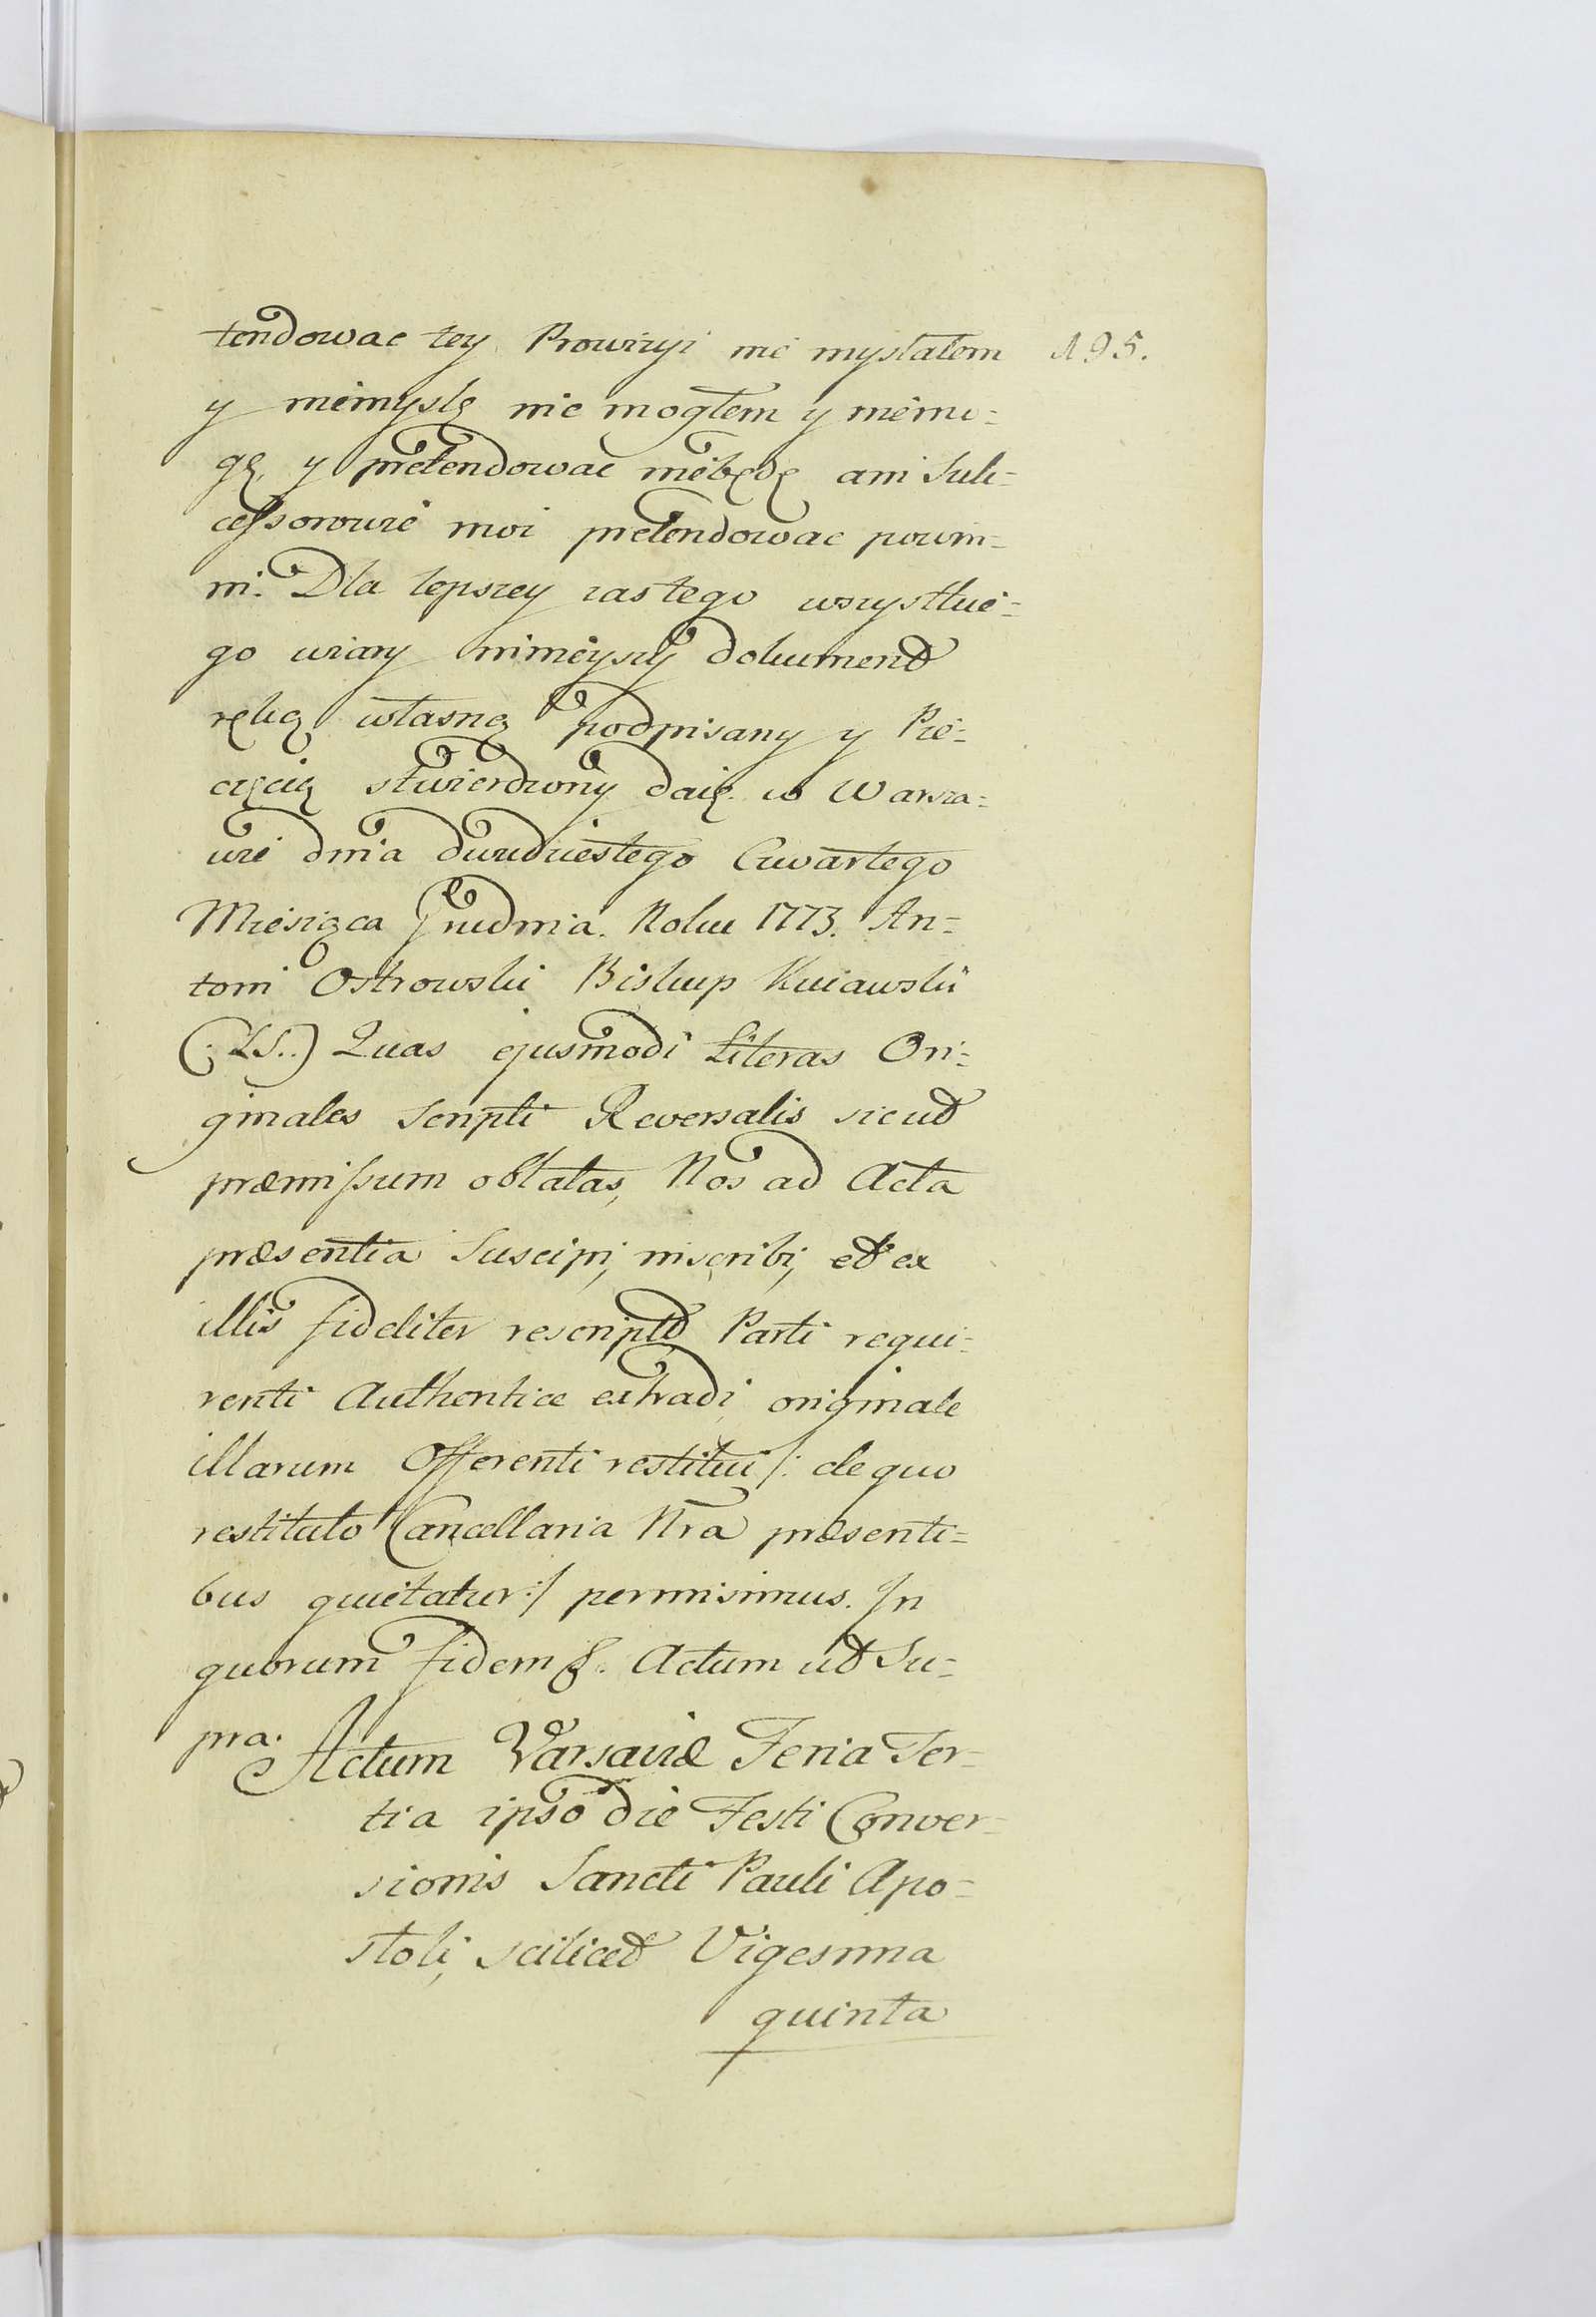 tendowac tey Prowizyi nie myslałem 195.
y niemyslę nie mogłem y niemo=
gę, y pretendowac niebędę ani Suk=
cessorowie moi pretendowac powin=
ni. Dla lepszey zas tego wszystkie=
go wiary ninieyszy dokument
ręką własną podpisany y Pie=
częcią stwierdzony daię. w Warsza=
wie dnia dwudziestego Czwartego
Miesiąca Grudnia. Roku 1773. An=
toni Ostrowski Biskup Kuiawski
(: LS.:) Quas ejusmodi Literas Ori=
ginales Scripti Reversalis sicut
præmissum oblatas, Nos ad Acta
præsentia Suscipi, inscribi, et ex
illis fideliter rescriptŭ Parti requi=
renti Authentice extradi, originale
illarum Offerenti restitui /: de quo
restituto Cancellaria Nra præsenti=
bus quietatur :/ permisimus. In
quorum fidem &. Actum ut Su=
pra.
Actum Varsaviæ Feria Ter=
tia ipso die Festi Conver=
sionis Sancti Pauli Apo=
stoli, scilicet Vigesima
quinta